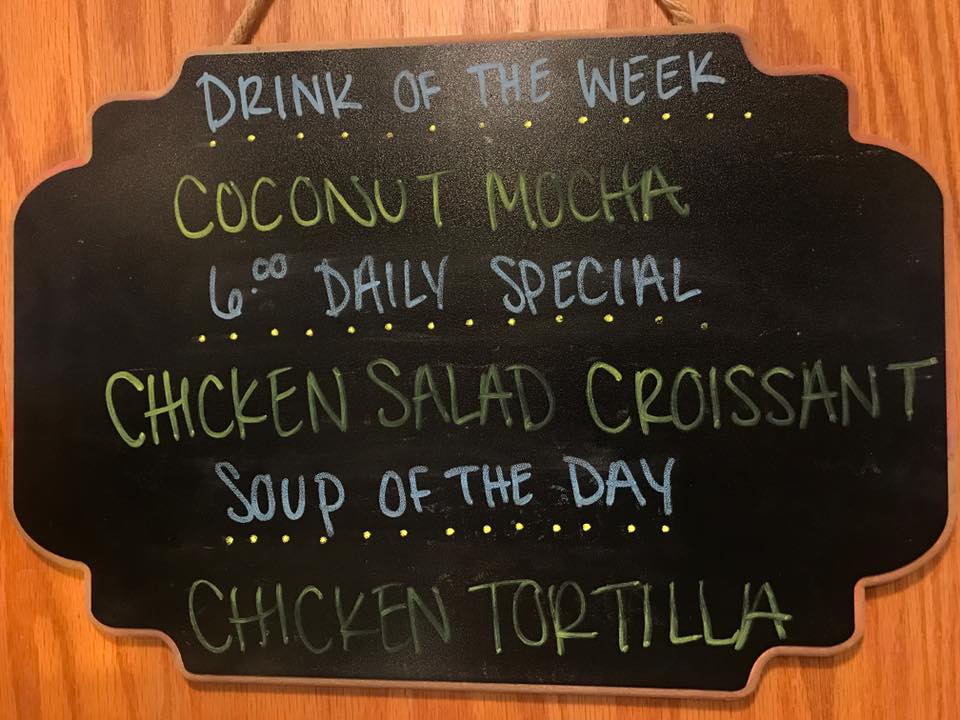 DRINK OF THE WEEK
COCONUT MOCHA
6.00 DAILY SPECIAL
CHICKEN SALAD CROISSANT
SOUP OF THE DAY
CHICKEN TORTILLA